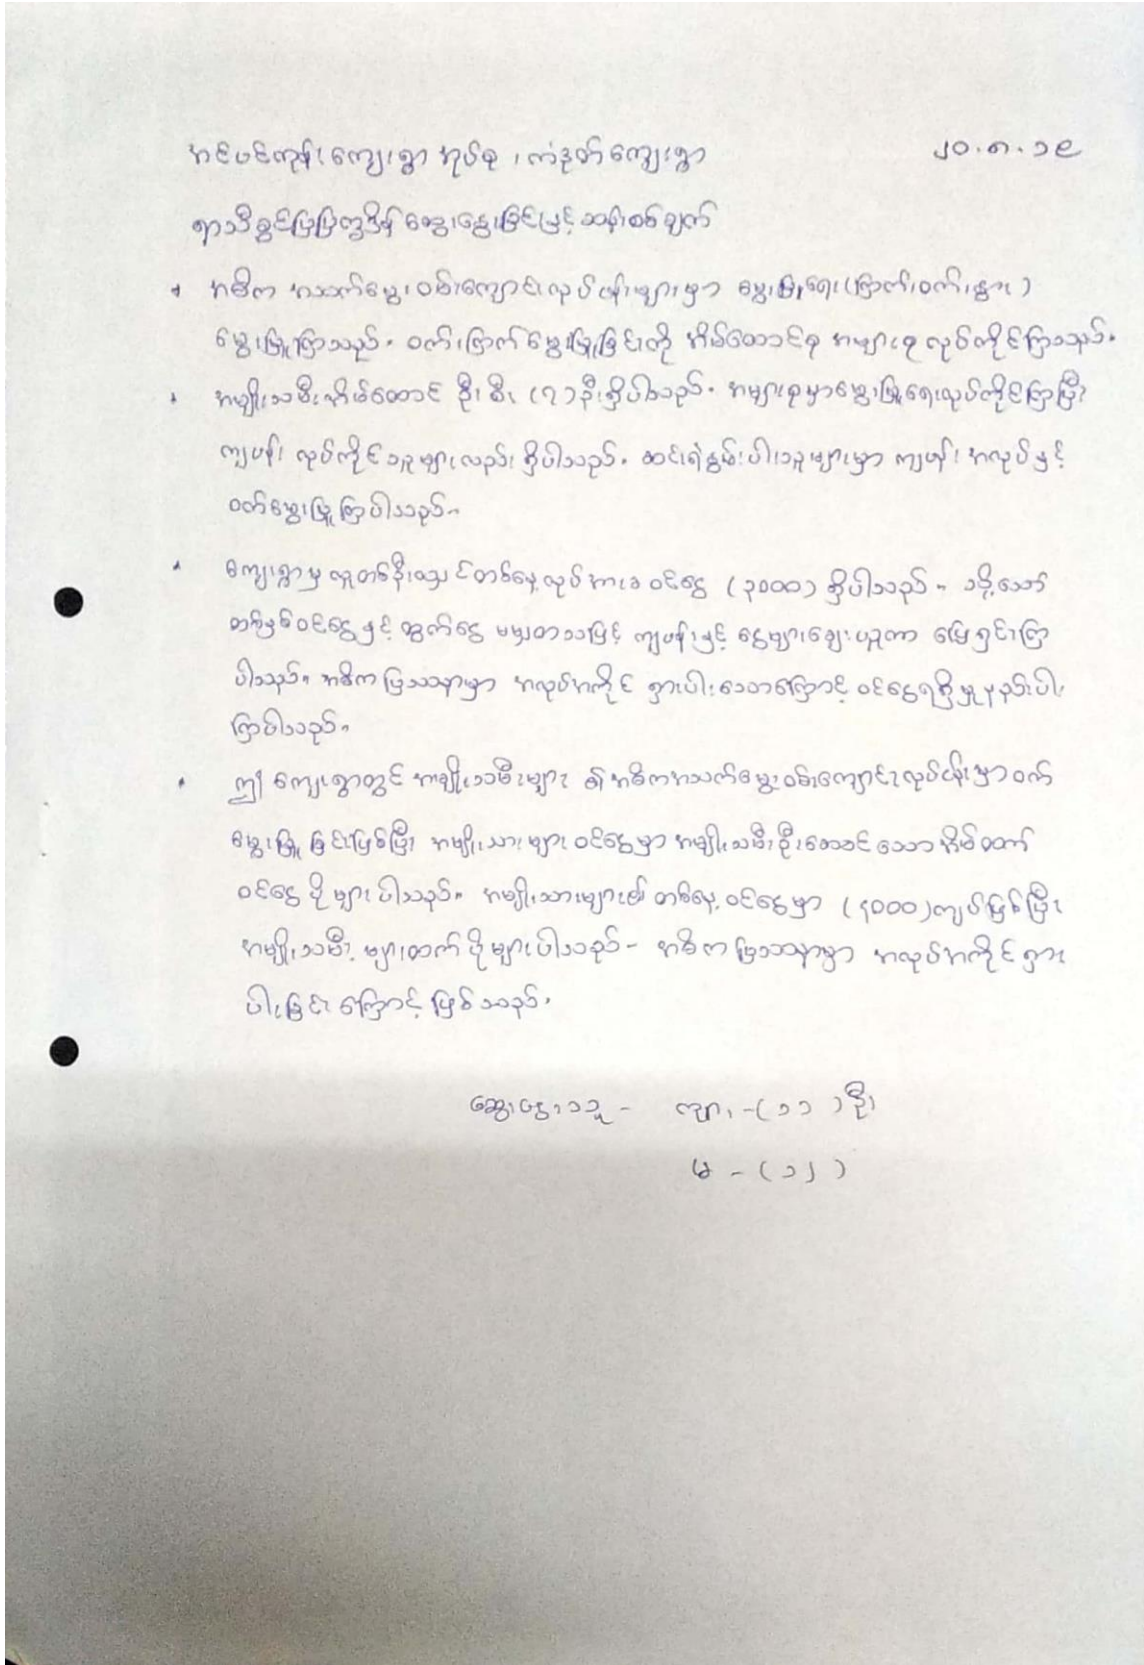 အင်ပင်ကုန်းကျေးရွာ အုပ်စု ၊ ကံဒုတ်ကျေးရွာ ၂၀.၈.၁၉
ရာသီခွင်ပြပြက္ခဒိန် ဆွေးနွေးခြင်းဖြင့် ဆန်းစစ်ချက်
အဓိက အသက်မွေးဝမ်းကျောင်းလုပ်ငန်းများမှာ မွေးမြူရေး (ကြက်၊ ဝက်၊ နွား)
မွေးမြူကြသည်။ ဝက်၊ ကြက် မွေးမြူခြင်းကို အိမ်ထောင်စု အများစု လုပ်ကိုင်ကြသည်။
အမျိုးသမီးအိမ်ထောင် ဦးစီး (၇) ဦးရှိပါသည်။ အများစုမှာမွေးမြူရေးလုပ်ကိုင်ကြပြီး
ကျပန်း လုပ်ကိုင်သူများလည်း ရှိပါသည်။ ဆင်းရဲနွမ်းပါးသူများမှာ ကျပန်း အလုပ်နှင့်
ဝက်မွေးမြူကြပါသည်။
ကျေးရွာမှ လူတစ်ဦးလျှင်တစ်နေ့လုပ်အားခ ဝင်ငွေ (၃၀၀၀) ရှိပါသည်။ သို့သော်
တစ်နှစ်ဝင်ငွေနှင့် ထွက်ငွေ မမျှတသဖြင့် ကျပန်းနှင့် ငွေများချေးယူကာ ဖြေရှင်းကြ
ပါသည်။ အဓိက ပြဿနာမှာ အလုပ်အကိုင် ရှားပါးသောကြောင့် ဝင်ငွေရရှိမှု နည်းပါး
ကြပါသည်။
ဤ ကျေးရွာတွင် အမျိုးသမီးများ ၏ အဓိကအသက်မွေးဝမ်းကျောင်းလုပ်ငန်းမှာ ဝက်
မွေးမြူခြင်းဖြစ်ပြီး အမျိုးသားများ ဝင်ငွေမှာ အမျိုးသမီးဦးဆောင်သောအိမ်ထက်
ဝင်ငွေ ပိုများပါသည်။ အမျိုးသားများ၏ တစ်နေ့ ဝင်ငွေမှာ (၅၀၀၀) ကျပ်ဖြစ်ပြီး
အမျိုးသမီး များထက် ပိုများပါသည်။ အဓိက ပြဿနာမှာ အလုပ်အကိုင် ရှား
ပါးခြင်း ကြောင့် ဖြစ်သည်။
ဆွေးနွေးသူ - ကျား - (၁၁) ဦး
မ - (၁၂)